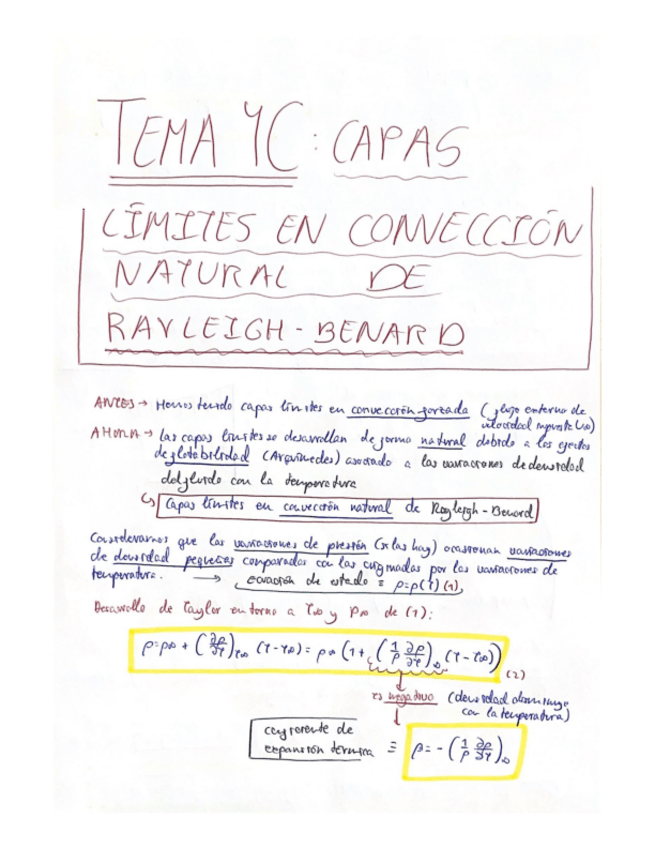 TEMA 4C: CAPAS
LÍMITES EN CONVECCIÓN
NATURAL DE
RAYLEIGH-BENARD
ANTES → Hemos tenido capas límites en convección forzada (flujo externo de
velocidad impuesta U∞)
AHORA → las capas límites se desarrollan de forma natural debido a los efectos
de flotabilidad (Arquímedes) asociado a las variaciones de densidad
del fluido con la temperatura
↳ Capas límites en convección natural de Rayleigh-Benard
Consideramos que las variaciones de presión (si las hay) ocasionan variaciones
de densidad pequeñas comparadas con las originadas por las variaciones de
temperatura. → ecuación de estado ≡ ρ=ρ(T) (1)
Desarrollo de Taylor en torno a T∞ y ρ∞ de (1):
ρ=ρ∞ + (∂ρ/∂T)T∞ (T-T∞) = ρ∞ (1+ (1/ρ ∂ρ/∂T)∞ (T-T∞)) (2)
es negativo (densidad disminuye
con la temperatura)
coeficiente de
expansión térmica ≡ β = - (1/ρ ∂ρ/∂T)∞